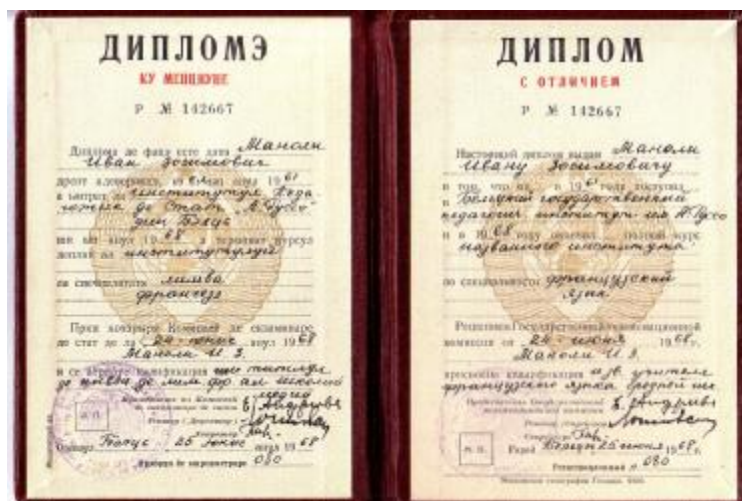 ДИПЛОМЭ
КУ МЕНЦИУНЕ
Р № 142667
Диплома де фацэ есте датэ Маноли
Иван Зосимович
дрепт адеверинцэ, кэ ел ын анул 1961
а интрат ла институтул Педа-
де Стат "А. Руссо"
дин Бэлць
ши ын анул 1968 а терминат курсул
деплин ал институтулуй
ла специалитатя лимба
франчезэ
Прин хотэрыря Комисией де екзаминаре
де стат де ла 24 июние анул 1968
Маноли И. З.
и се атрибуе квалификация
де лим. фр. ал школий
медий
М. П.
Орашул Бэлць 25 июние анул 1968
Нумэрул де ынрежистраре 080
ДИПЛОМ
С ОТЛИЧИЕМ
Р № 142667
Настоящий диплом выдан Маноли
Ивану Зосимовичу
в том, что он в 1961 году поступил
в Бельцкий государственный
педагогич. институт им. А. Руссо
и в 1968 году окончил полный курс
названного института
по специальности французский
язык
Решением Государственной экзаменационной
комиссии от 24 июня 1968 г.
Маноли И. З.
присвоена квалификация учителя
французского языка средней
Председатель Государственной
экзаменационной комиссии
Ректор
Секретарь
М. П.
Город Бельцы 25 июня 1968 г.
Регистрационный № 080
Московская типография Гознака. 1966.